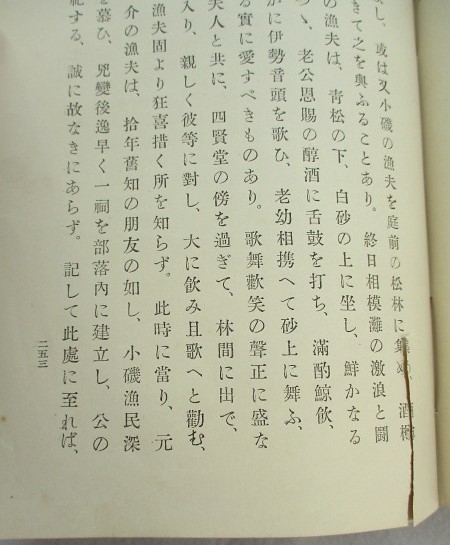 まし、或は又小磯の漁夫を庭前の松林に集め、酒樽
きて之を與ふることあり。終日相模灘の激浪と鬪
の漁夫は、靑松の下、白砂の上に坐し、鮮かなる
つゝ、老公恩賜の醇酒に舌鼓を打ち、滿酌鯨飮、
かに伊勢音頭を歌ひ、老幼相携へて砂上に舞ふ、
る實に愛すべきものあり。歌舞歡笑の聲正に盛な
夫人と共に、四賢堂の傍を過ぎて、林間に出で、
入り、親しく彼等に對し、大に飮み且歌へと勸む、
漁夫固より狂喜措く所を知らず。此時に當り、元
介の漁夫は、拾年舊知の朋友の如し、小磯漁民深
を慕ひ、兇變後逸早く一祠を部落內に建立し、公の
祀する、誠に故なきにあらず。記して此處に至れば、
二五三